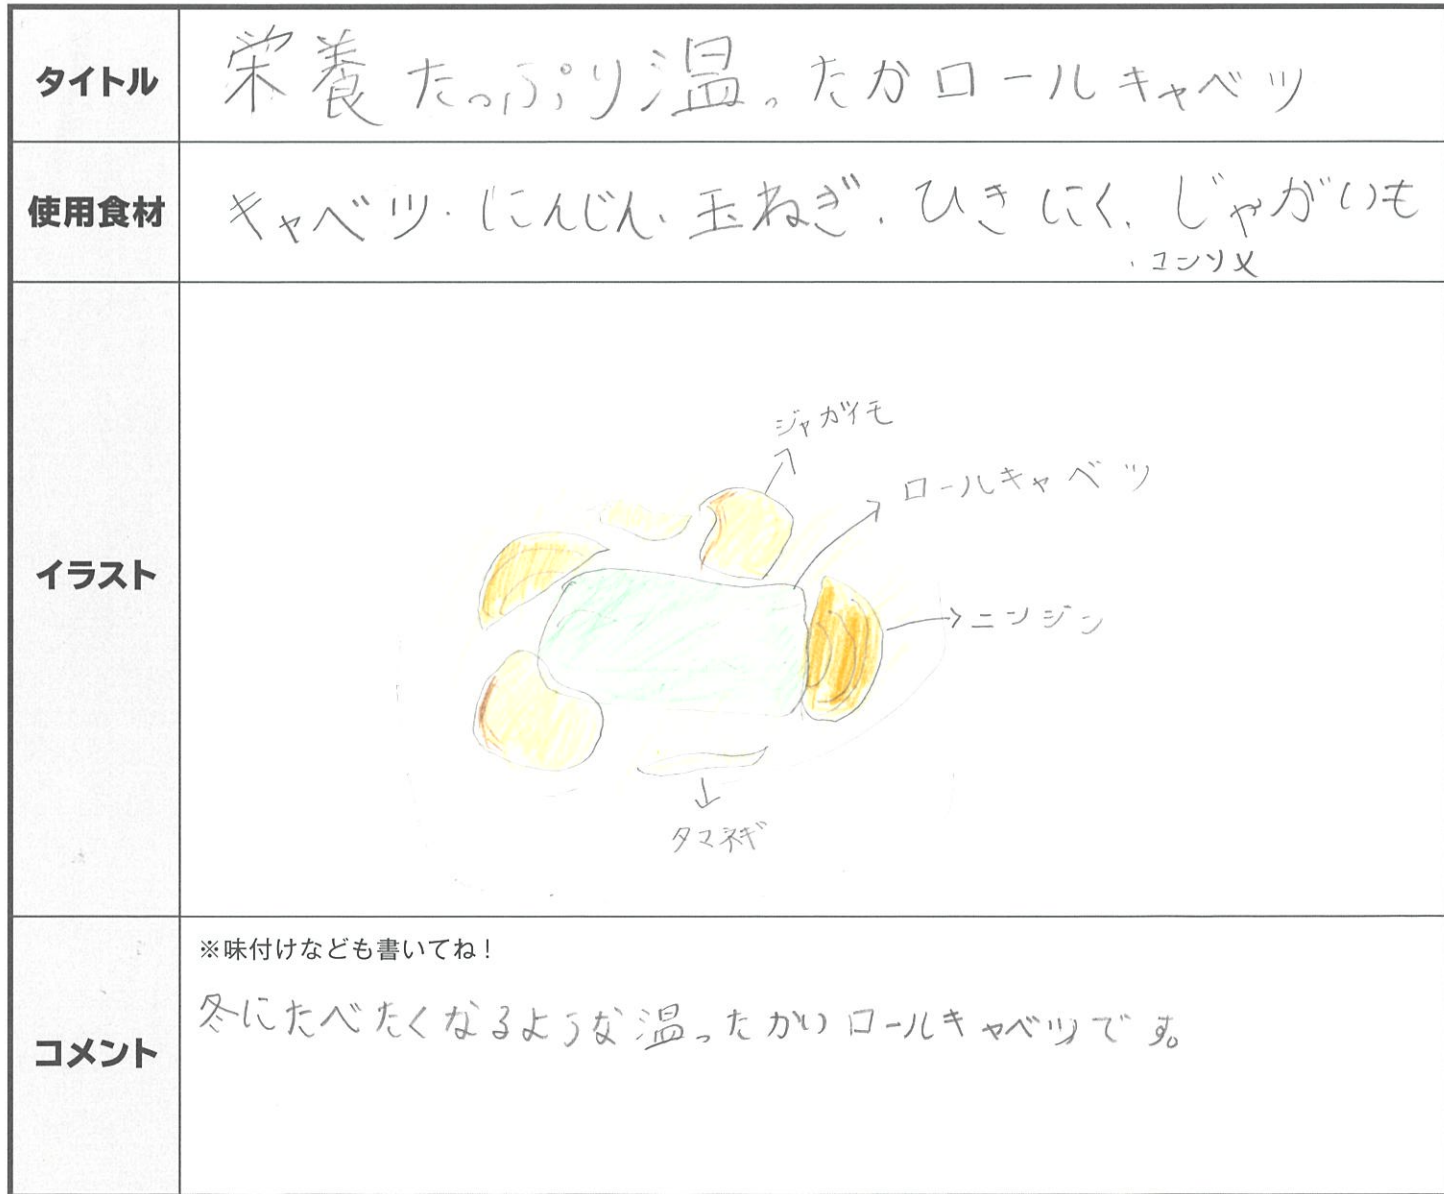 タイトル
栄養たっぷり温ったかロールキャベツ
使用食材
キャベツ・にんじん・玉ねぎ・ひきにく・じゃがいも
・コンソメ
イラスト
ジャガイモ
ロールキャベツ
ニンジン
タマネギ
コメント
※味付けなども書いてね!
冬にたべたくなるような温ったかいロールキャベツです。